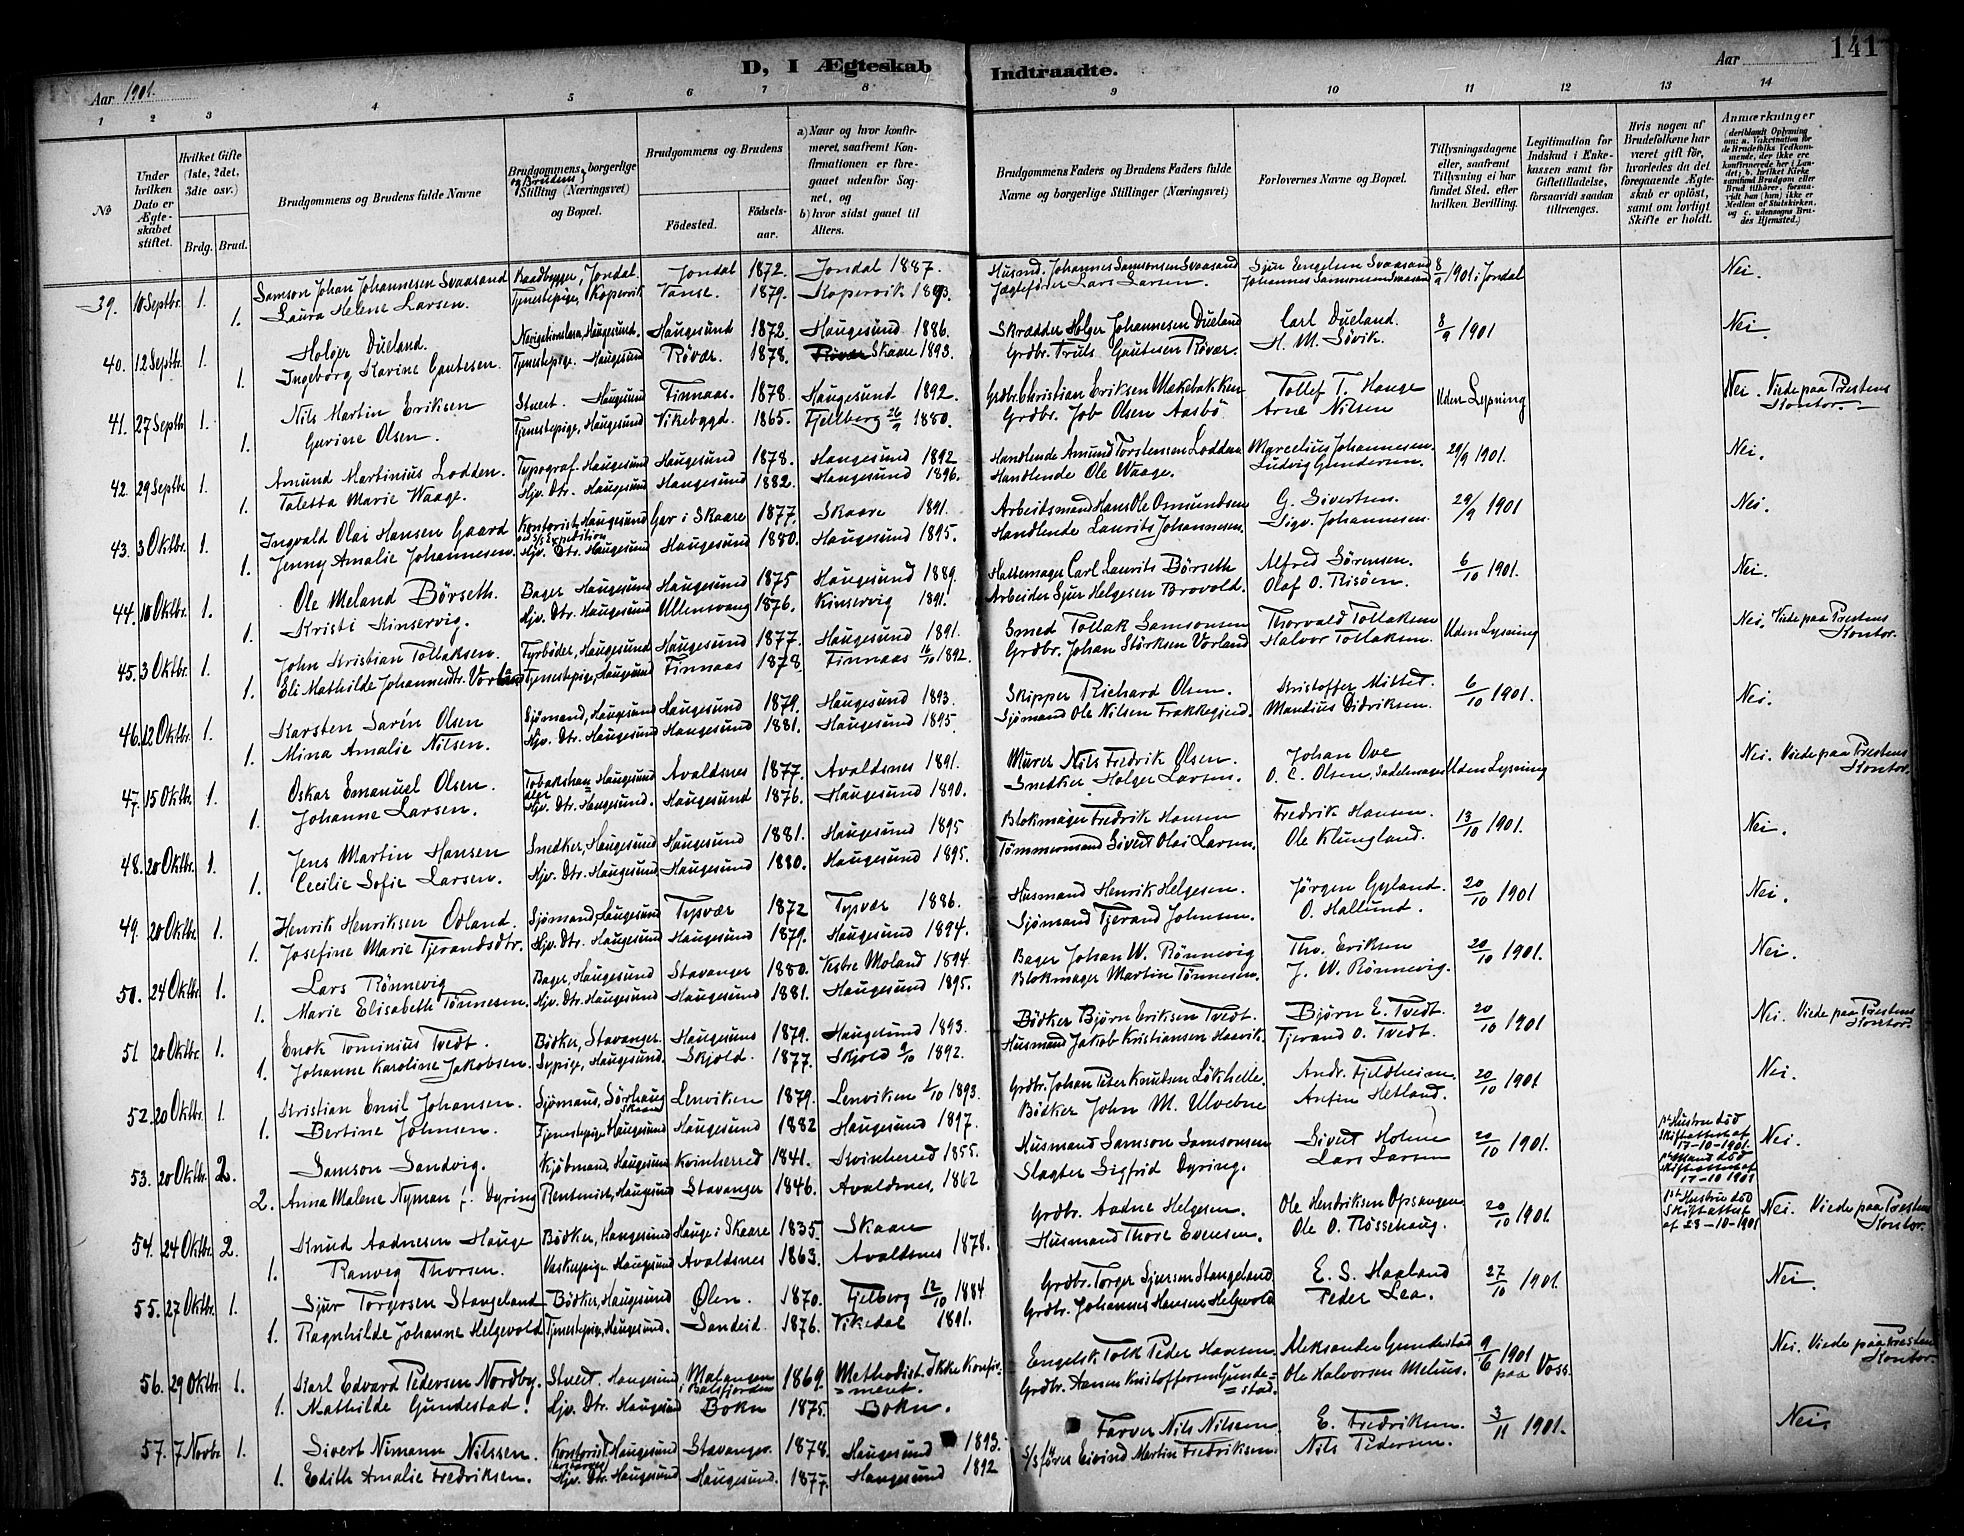 141
D, I Ægteskab Indtraadte.
Aar 1901.
Aar
1 2 3 4 5 6 7 8 9 10 11 12 13 14
No
Under hvilken Dato er Ægteskabet stiftet.
Hvilket Gifte (1ste, 2det, 3die osv.)
Brdg. Brud.
Brudgommens og Brudens fulde Navne
Brudgommens og Brudens borgerlige Stilling (Næringsvei) og Bopæl.
Brudgommens og Brudens
Födested. Födselsaar.
a) Naar og hvor konfirmeret, saafremt Konfirmationen er foregaaet udenfor Sognet, og
b) hvor sidst gaaet til Alters.
Brudgommens Faders og Brudens Faders fulde Navne og borgerlige Stillinger (Næringsvei)
Forlovernes Navne og Bopæl.
Tillysningsdagene eller, saafremt Tillysning ei har fundet Sted, efter hvilken Bevilling.
Legitimation for Indskud i Enkekassen samt for Giftetilladelse, forsaavidt saadan tiltrænges.
Hvis nogen af Brudefolkene har været gift för, hvorledes da det foregaaende Ægteskab er oplöst, samt om lovligt Skifte er holdt.
Anmærkninger
(deriblandt Oplysning om: a. Vakcination for de Brudefolks Vedkommende, der ikke ere konfirmerede her i Landet; b. hvilket Kirkesamfund Brudgom eller Brud tilhörer, forsaavidt han (hun) ikke er Medlem af Statskirken, og c. udensogns Brudes Hjemsted.)
39. 10 Septbr. 1. Samson Johan Johannesen Svaasand Baadbygger, Jondal. Jondal 1872. Jondal 1887. Husmd. Johannes Samsonsen Svaasand Sjur Engelsen Svaasand 8/9 1901 i Jondal Nei.
1. Laura Helene Larsen. Tjenestepige, Kopervik Vanse. 1879. Kopervik 1893. Jægtefører Lars Larsen. Johannes Samsonsen Svaasand
40. 12 Septbr. 1. Holger Dueland. Navigationslærer, Haugesund. Haugesund 1872. Haugesund 1886. Skrædder Holger Johannesen Dueland Carl Dueland. 8/9 1901 Nei.
1. Ingeborg Karine Gautesen. Tjenestepige. Haugesund Røvær. 1878. Skaare 1893. Grdbr. Truls Gautesen Røvær. H. M. Søvik.
41. 27 Septb. 1. Nils Martin Eriksen Stuert. Haugesund Finnaas. 1878. Haugesund 1892. Grdbr. Christian Eriksen Mækebakken Tollef T. Hauge Uden Lysning Nei. Viede paa Prestens Kontor.
1. Gurine Olsen. Tjenestepige, Haugesund Vikebygd. 1865. Fjelberg 26/9 1880. Grdbr. Job Olsen Aasbø. Arne Nilsen
42. 29 Septbr 1. Amund Martinius Lodden. Typograf. Haugesund Haugesund 1878. Haugesund 1892 Handlende Amund Torstensen Lodden Marcelius Johannesen. 29/9 1901. Nei.
1. Taletta Marie Waage. Hjv. Dtr. Haugesund Haugesund 1882. Haugesund 1896. Handlende Ole Waage. Ludvig Gundersen.
43. 3 Oktbr. 1. Ingvald Olai Hansen Gaard Kontorist, Haugesund ved S/S Expedition Gar i Skaare 1877. Skaare 1891. Arbeidsmand Hans Ole Osmundsen G. Sivertsen. 29/9 1901 Nei.
1. Jenny Amalie Johannesen. Hjv. Dtr. Haugesund Haugesund 1880. Haugesund 1895. Handlende Laurits Johannesen. Sigv. Johannesen.
44. 10 Oktbr. 1. Ole Meland Börseth. Bager Haugesund Haugesund 1875 Haugesund 1889. Hattemager Carl Laurits Börseth Alfred Sörensen. 6/10 1901. Nei.
1. Kristi Kinservig. Hjv. Dtr. Haugesund Ullensvang 1876. Kinservig 1891. Arbeider Sjur Helgesen Brovold. Olaf O. Risöen.
45. 3 Oktbr. 1. John Kristian Tollaksen. Fyrböder, Haugesund Haugesund 1877. Haugesund 1891. Smed Tollak Samsonsen Thorvald Tollaksen Uden Lysning Nei. Viede paa Prestens Kontor.
1. Eli Mathilde Johannesdtr. Vorland Tjenestepige, Haugesund Finnaas 1878. Finnaas 16/10 1892. Grdbr. Johan Störksen Vorland Halvor Tollaksen.
46. 12 Oktbr. 1. Karsten Sarén Olsen Sjømand, Haugesund Haugesund 1879. Haugesund 1893. Skipper Richard Olsen. Kristoffer Mittet. 6/10 1901. Nei.
1. Mina Amalie Nilsen. Hjv. Dtr. Haugesund Haugesund 1881. Haugesund 1895. Sjömand Ole Nilsen Frakkegjerd. Mandius Didriksen.
47. 15 Oktbr. 1. Oskar Emanuel Olsen. Tobakshandler Haugesund Avaldsnes 1877. Avaldsnes 1891. Murer Nils Fredrik Olsen. Johan Ove Uden Lysning Nei. Viede paa Prestens Kontor.
1. Johanne Larsen. Hjv. Dtr. Haugesund. Haugesund 1876. Haugesund 1890. Snedker Holger Larsen. O. C. Olsen, Sadelmager
48. 20 Oktbr. 1. Jens Martin Hansen Snedker, Haugesund Haugesund 1881. Haugesund 1895 Blokmager Fredrik Hansen Fredrik Hansen. 13/10 1901. Nei.
1. Cecilie Sofie Larsen. Hjv. Dtr. Haugesund Haugesund 1880. Haugesund 1895. Tömmermand Sivert Olai Larsen. Ole Klungland.
49. 20 Oktbr. 1. Henrik Henriksen Odland. Sjömand, Haugesund Tysvær 1872 Tysvær 1886. Husmand Henrik Helgesen. Jörgen Gyland. 20/10 1901 Nei.
1. Josefine Marie Tjerandsdtr. Hjv. Dtr. Haugesund Haugesund 1879. Haugesund 1894. Sjömand Tjerand Johnsen. O. Hallund.
50. 24 Oktbr. 1. Lars Rönnevig Bager, Haugesund Stavanger 1880. Vestre Moland 1894. Bager Johan W. Rönnevig Tho. Eriksen 20/10 1901. Nei.
1. Marie Elisabeth Tönnesen. Hjv. Dtr. Haugesund Haugesund 1881. Haugesund 1895. Blokmager Martin Tönnesen. J. W. Rönnevig.
51 20 Oktbr. 1. Enok Tominius Tvedt. Bödker, Stavanger. Haugesund 1879. Haugesund 1893. Bödker Björn Eriksen Tvedt. Björn E. Tvedt. 20/10 1901 Nei. Viede paa Prestens Kontor.
1. Johanne Karoline Jakobsen. Sypige, Haugesund. Skjold. 1877. Skjold 9/10 1892. Husmand Jakob Kristiansen Haavik. Tjerand O. Tvedt.
52. 20 Oktbr. 1. Kristian Emil Johansen. Sjömand, Sörhaug Skaare Lenviken 1879. Lenviken 1/10 1893. Grdbr. Johan Peter Knudsen Lökhelle. Andr. Fjeldheim. 20/10 1901 Nei.
1. Bertine Johnsen. Tjenestepige Haugesund Haugesund 1882 Haugesund 1897. Bödker John M. Ulvebne Anfin Hetland.
53. 20 Oktbr. 2. Samson Sandvig. Kjöbmand, Haugesund Kvinherred 1841. Kvinherred 1855. Husmand Samson Samsonsen Sivert Holme 20/10 1901. 1st Hustru död Skifteattest af 17-10-1901. Nei.
2. Anna Malene Nyman f. Dyring Rentenist, Haugesund Stavanger 1846. Avaldsnes, 1862 Slagter Sigfrid Dyring. Lars Larsen 1st Mand död Skifteattest af 17-10 1901
54. 24 Oktbr. 2. Knud Aadnesen Hauge Bödker, Haugesund Hauge i Skaare 1835. Skaare Grdbr. Aadne Helgesen. Ole Hendriksen Opsangen 20/10 1901. 1st Hustru död Skifteattest af 23-10-1901 Nei. Viede paa Prestens Kontor.
1. Ranveg Thorsen. Vaskepige. Haugesund Avaldsnes 1863. Avaldsnes 1878. Husmand Thore Evensen. Ole O. Flössehaug.
55. 27 Oktbr. 1. Sjur Torgersen Stangeland Bödker, Haugesund Ølen. 1870. Fjelberg 12/10 1884 Grdbr. Torger Sjursen Stangeland E. S. Haaland 27/10 1901. Nei.
1. Ragnhilde Johanne Helgevold Tjenestepige, Haugesund. Sandeid. 1876. Vikedal 1891. Grdbr. Johannes Hansen Helgevold Peder Lea.
56. 29 Oktbr. 1. Karl Edvard Pedersen Nordby. Stuert. Haugesund Malangen i Balsfjorden 1869. Methodist. Ikke Konfirment. Engelsk Tolk Peder Hansen. Aleksander Gundestad 9/6 1901 paa Voss. Nei. Viede paa Prestens Kontor.
1. Mathilde Gundestad. Hjv. Dtr. Haugesund Bokn 1875. Bokn. Grdbr. Hansen Kristoffersen Gundestad. Ole Halvorsen Melius.
57. 7 Novbr. 1. Sivert Nimann Nilssen. Kontorist Haugesund Stavanger. 1878. Haugesund 1893. Farver Nils Nilsen E. Fredriksen. 3/11 1901. Nei
1. Edith Amalie Fredriksen. Hjv. Dtr. Haugesund Haugesund. 1877. Haugesund 1892 S/S förer Eivind Martin Fredriksen. Nils Pedersen.